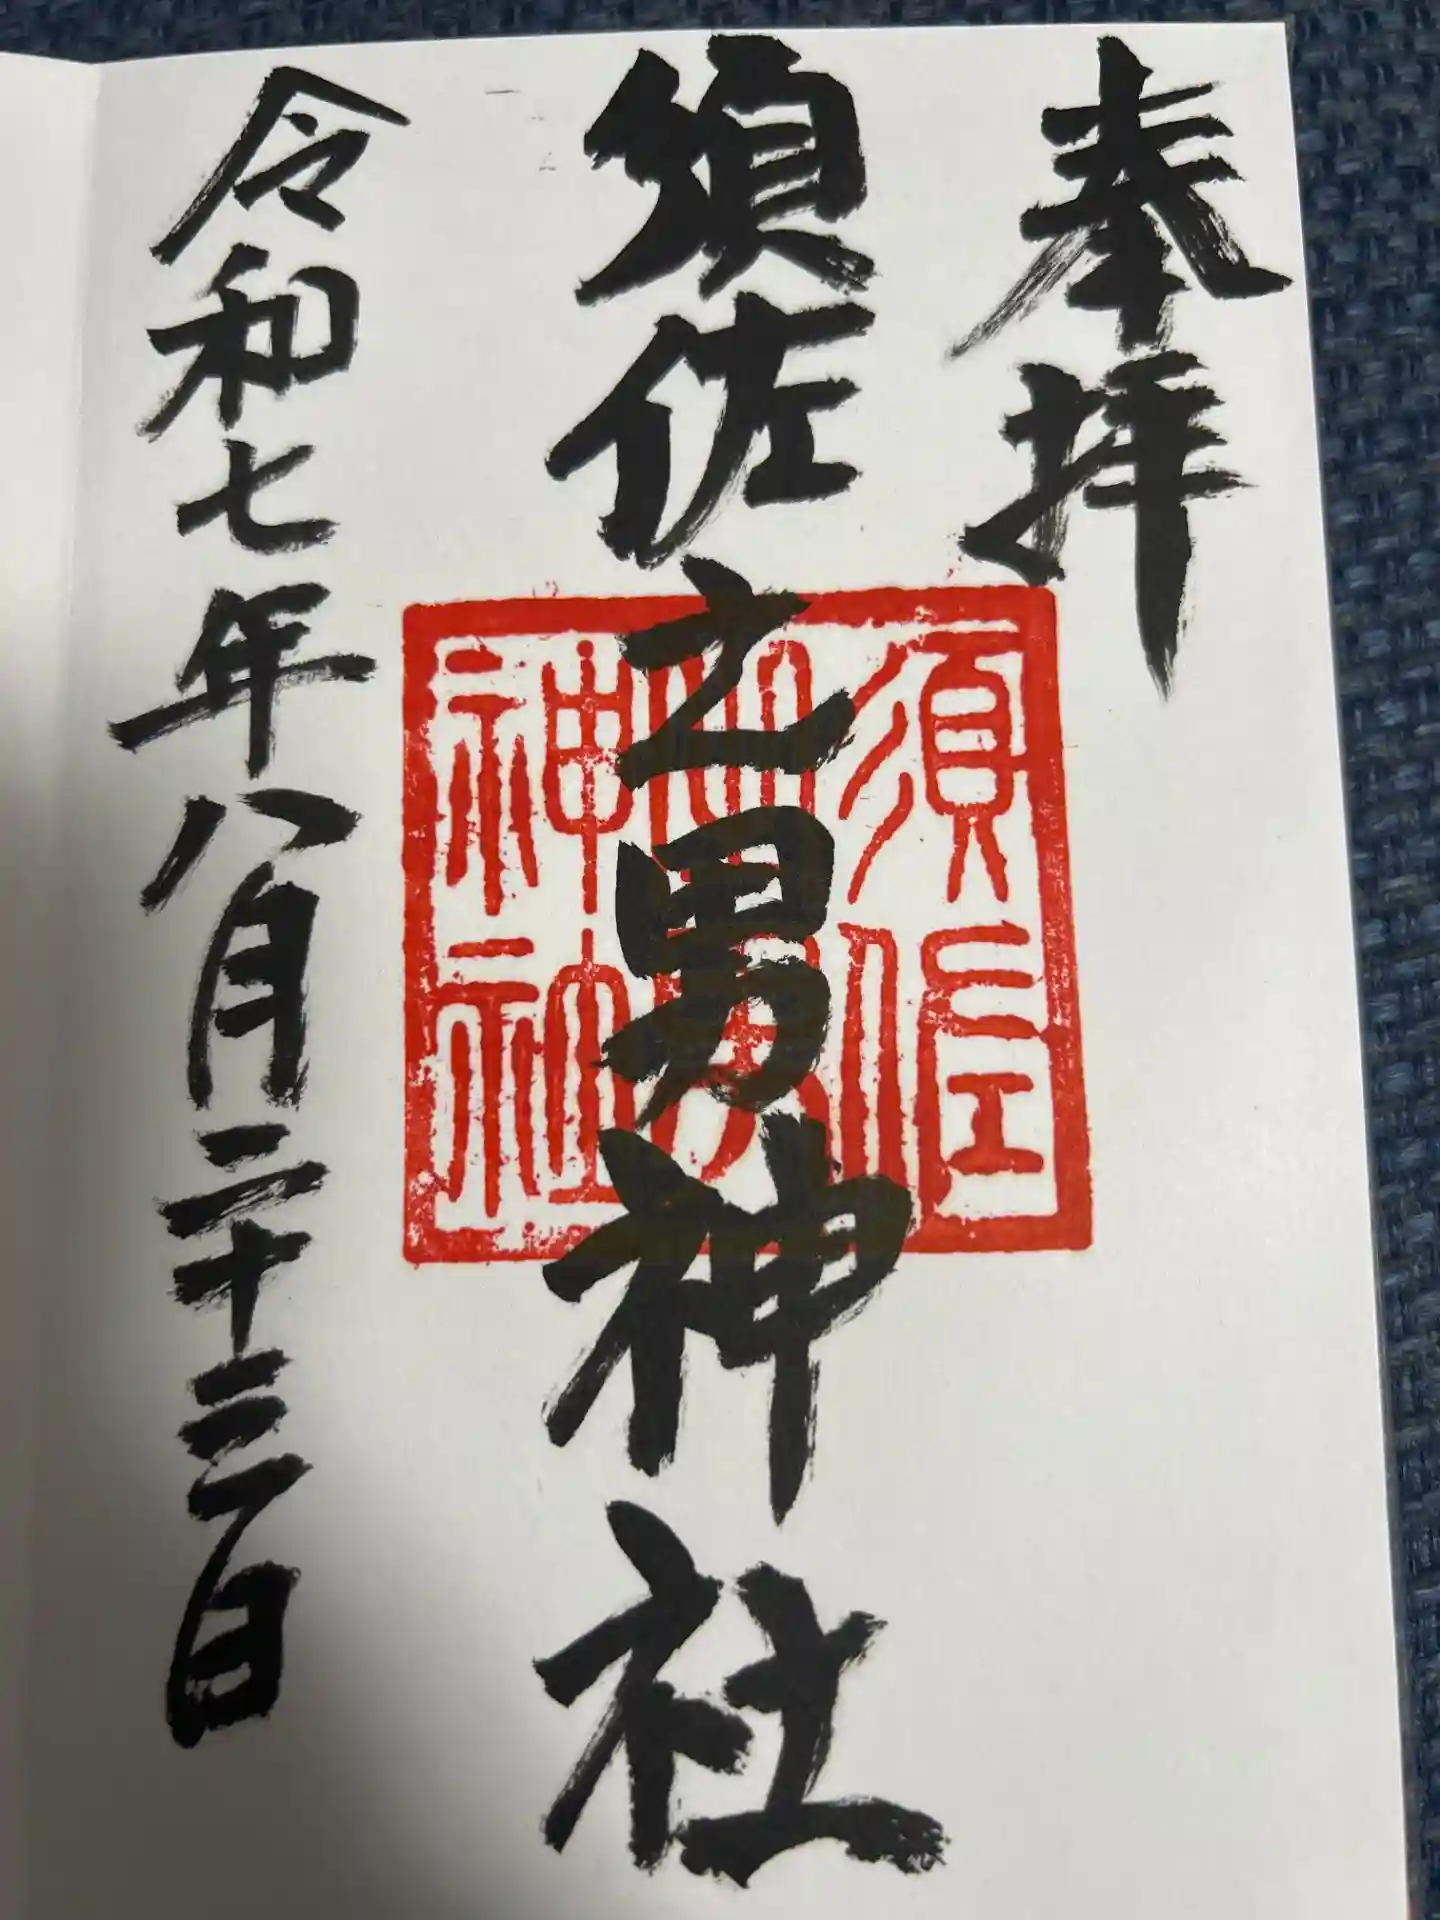 奉拝
須佐之男神社
令和七年八月二十三日
須佐
之男
神社